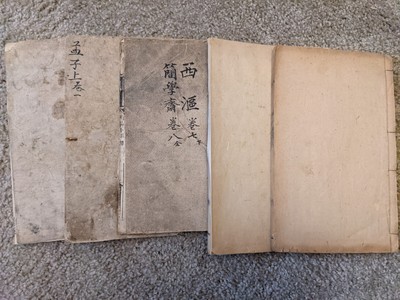 西漚卷七
簡學齋卷八
孟子上卷一